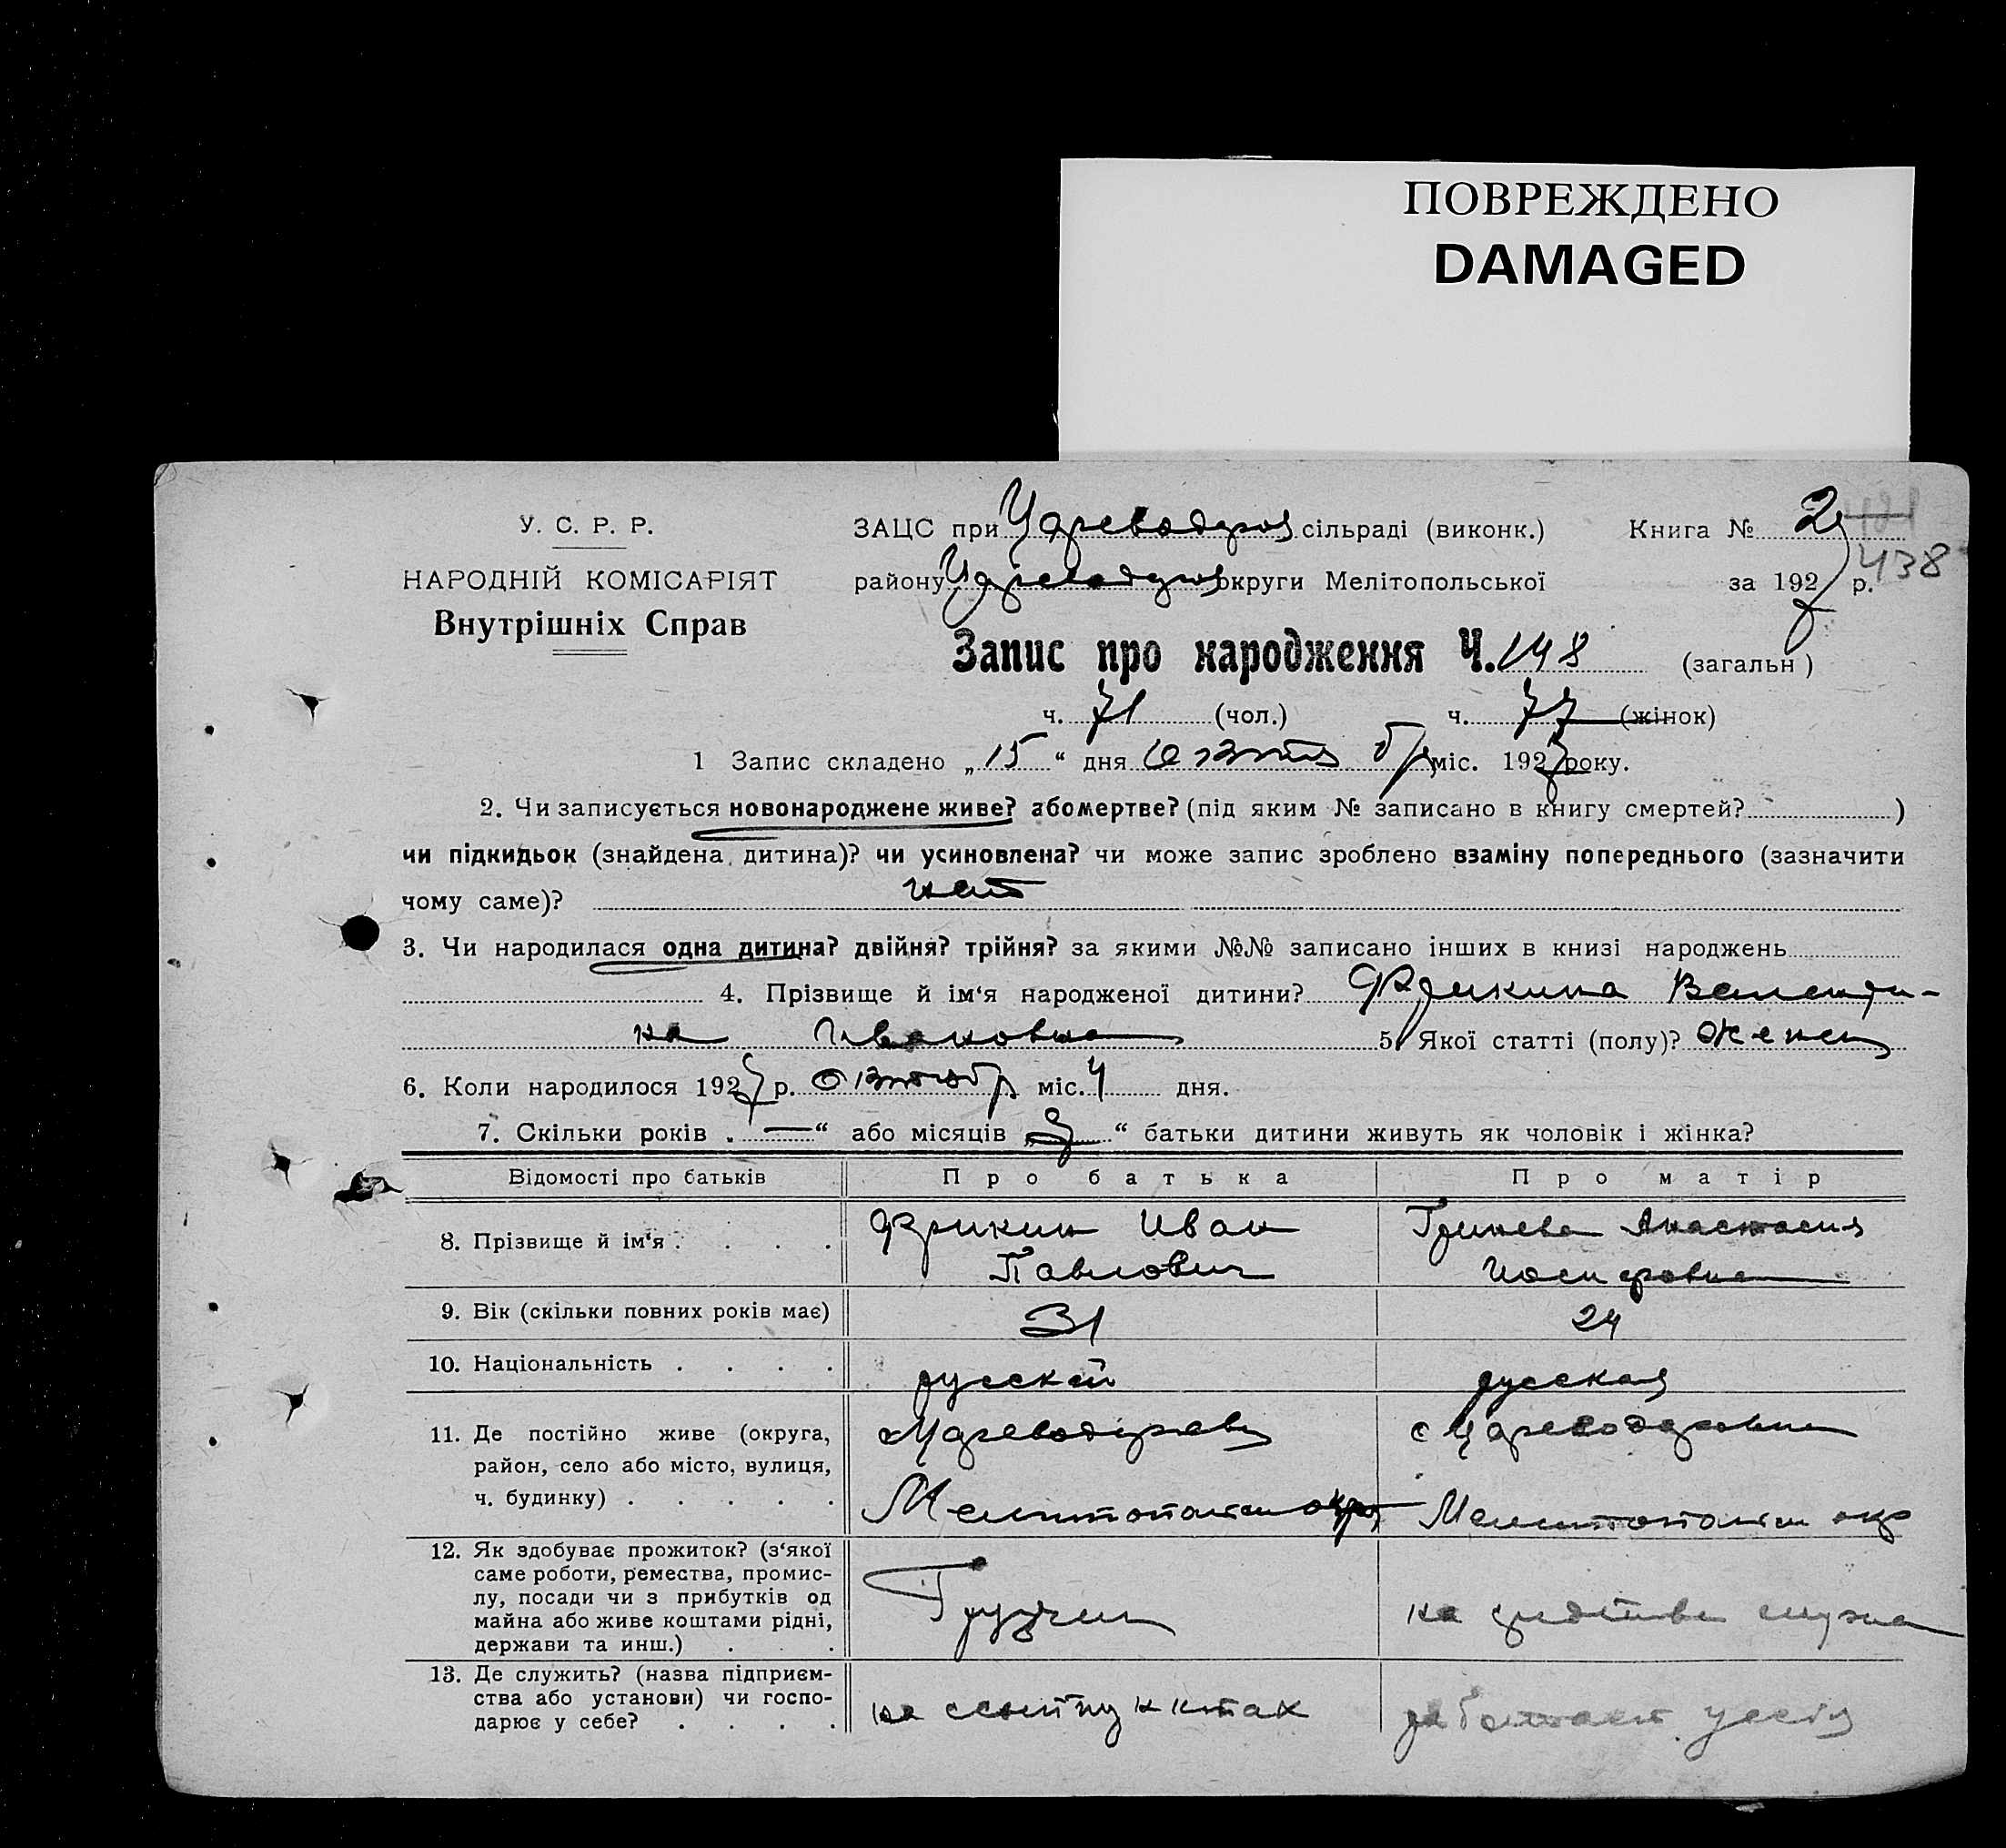 ПОВРЕЖДЕНО
DAMAGED
У. С. Р. Р.
НАРОДНІЙ КОМІСАРІЯТ
Внутрішніх Справ
ЗАЦС при сільраді (виконк.) Книга № 2
438
району округи Мелітопольської за 1927 р.
Запис про народження Ч. 148 (загальн )
ч. 71 (чол.) ч. 77 (жінок)
1 Запис складено „15“ дня міс. 1927 року.
2. Чи записується новонароджене живе? або мертве? (під яким № записано в книгу смертей? )
чи підкидьок (знайдена дитина)? чи усиновлена? чи може запис зроблено взаміну попереднього (зазначити
чому саме)? нет
3. Чи народилася одна дитина? двійня? трійня? за якими №№ записано інших в книзі народжень
4. Прізвище й ім‘я народженої дитини? Валенти-
на Ивановна 5. Якої статті (полу)? женск
6. Коли народилося 1927 р. октябр міс. 4 дня.
7. Скільки років „—“ або місяців „9“ батьки дитини живуть як чоловік і жінка?
Відомості про батьків Про батька Про матір
8. Прізвище й ім‘я . . . . Иван Анастасия
Павлович Иосифовна
9. Вік (скільки повних років має) 31 24
10. Національність . . . . русский русская
11. Де постійно живе (округа,
район, село або місто, вулиця,
ч. будинку) . . . . . Мелитопольск окр Мелитопольск окр
12. Як здобуває прожиток? (з‘якої
саме роботи, ремества, промис-
лу, посади чи з прибутків од
майна або живе коштами рідні,
держави та инш.) . . . Грузчик на средства мужа
13. Де служить? (назва підприєм-
ства або установи) чи госпо-
дарює у себе? . . . . на работает у себя